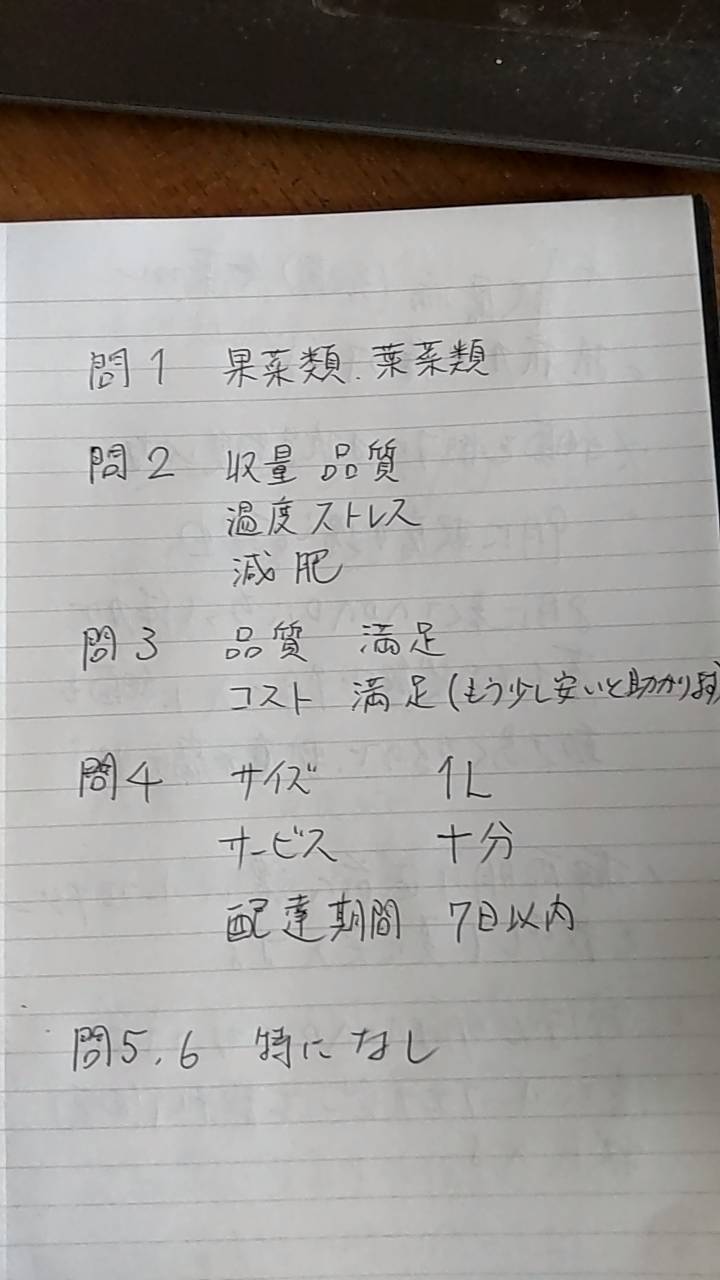 問1 果菜類.葉菜類
問2 収量 品質
温度ストレス
減肥
問3 品質 満足
コスト 満足(もう少し安いと助かります)
問4 サイズ 1L
サービス 十分
配達期間 7日以内
問5.6 特になし